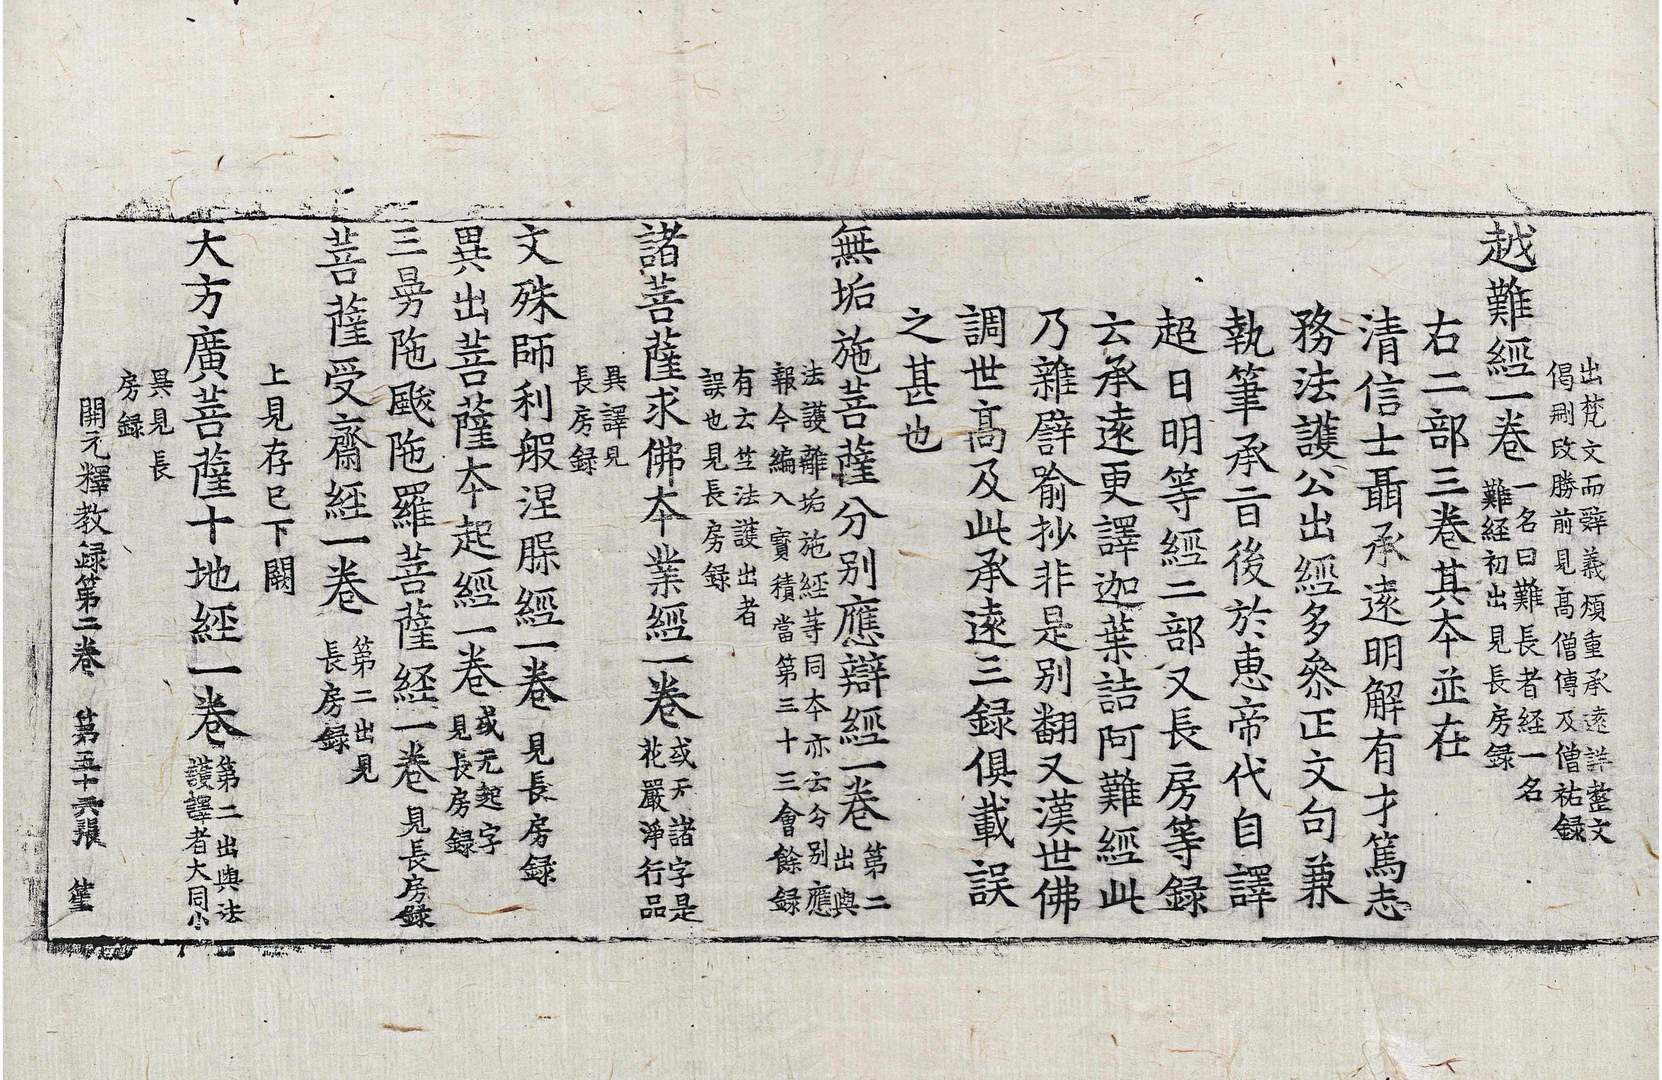 出梵文而辤義煩重承遠詳整文
偈刪改勝前見高僧傳及僧祐錄
越難經一卷 一名曰難長者経一名
難経初出見長房錄
右二部三卷其本並在
清信士聶承遠明解有才篤志
務法護公出經多叅正文句兼
執筆承旨後於惠帝代自譯
超日明等經二部又長房等録
云承遠更譯迦葉詰阿難經此
乃雜譬喻抄非是別翻又漢世佛
調世高及此承遠三録俱載誤
之甚也
無垢施菩薩分別應辯經一卷 第二出與
法護離垢施経䓁同本亦云分別應
報今編入寶積當第三十三會餘録
有云竺法護出者
誤也見長房録
諸菩薩求佛本業經一卷 或无諸字是
花嚴淨行品
異譯見
長房録
文殊師利般涅槃經一卷 見長房録
異出菩薩本起經一卷 或无起字
見長房録
三曼陁颰陁羅菩薩經一卷 見長房録
菩薩受齋經一卷 第二出見
長房録
上見存已下闕
大方廣菩薩十地經一卷 第二出與法
護譯者大同小
異見長
房録
開元釋教録第二卷 第五十六張 笙